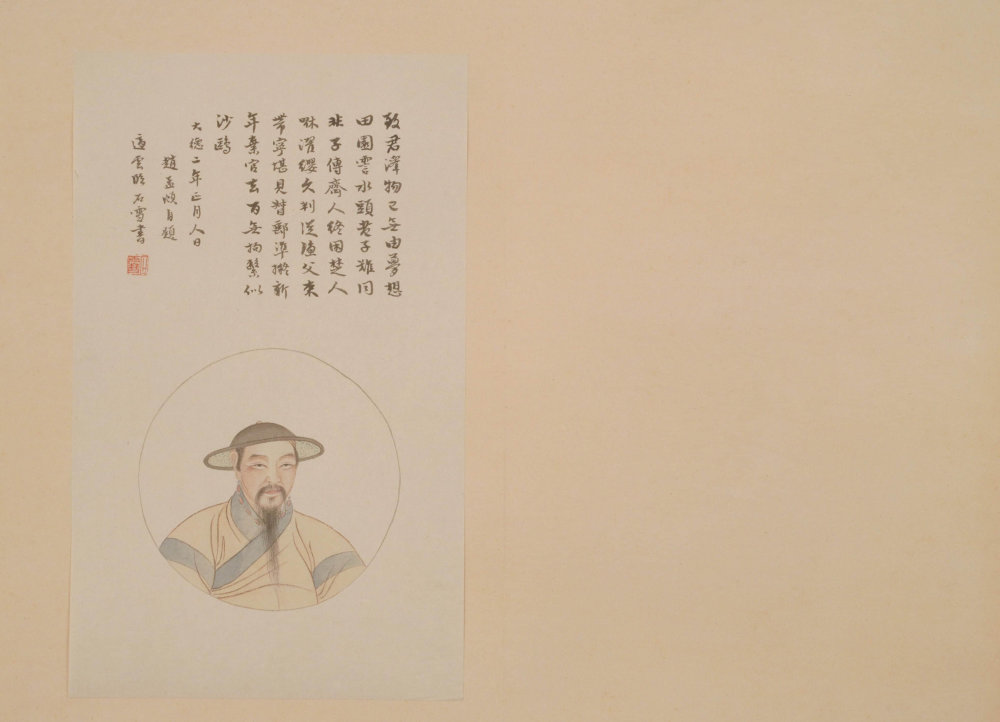 致君澤物已無由夢想
田園霅水頭老子難同
非子傳齊人終困楚人
咻濯纓久判從漁父束
帶寧堪見督郵準擬新
年棄官去百無拘繫似
沙鷗
大德二年正月人日
趙孟頫自題
石雪書